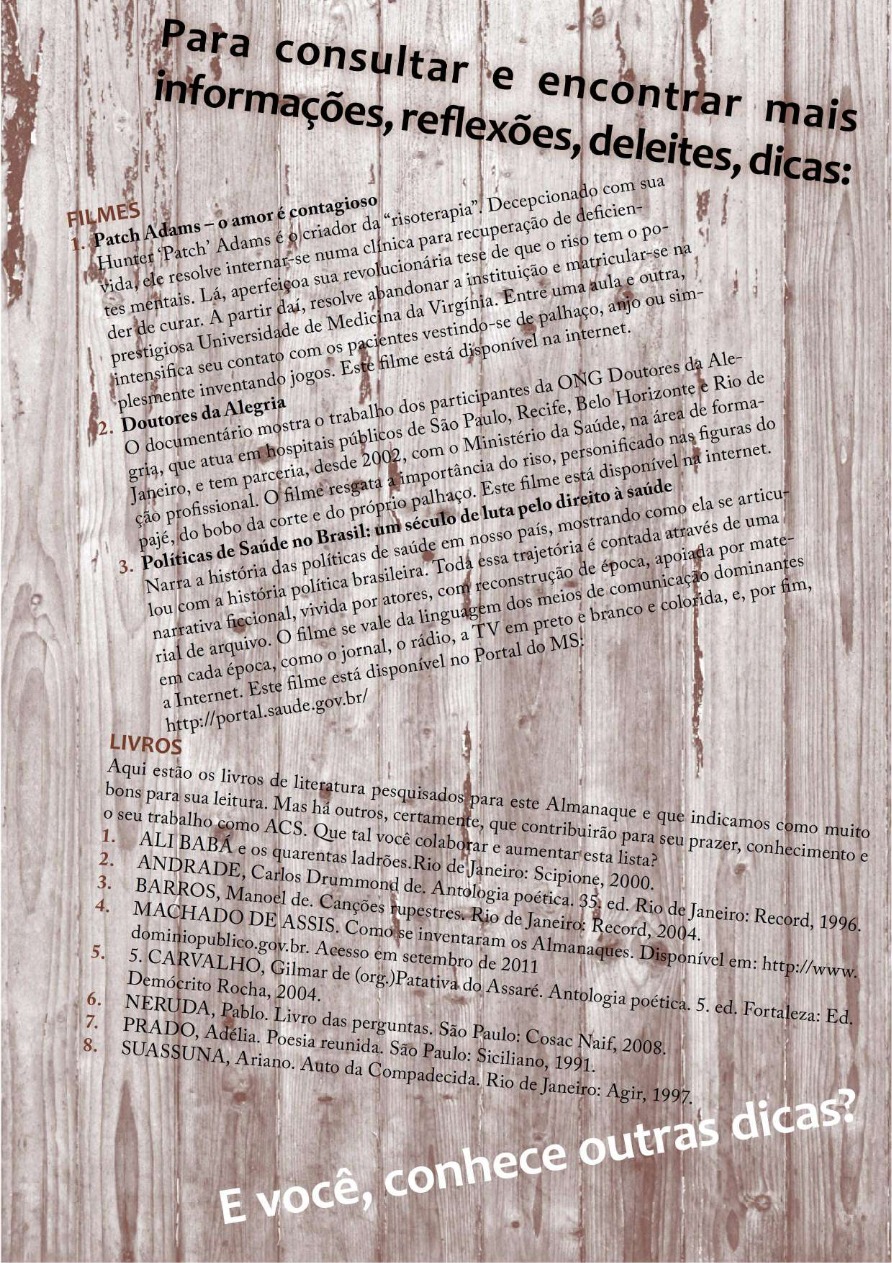 Para consultar e encontrar mais
informações, reflexões, deleites, dicas:
FILMES
1. Patch Adams – o amor é contagioso
Hunter ‘Patch’ Adams é o criador da “risoterapia”. Decepcionado com sua
vida, ele resolve internar-se numa clínica para recuperação de deficien-
tes mentais. Lá, aperfeiçoa sua revolucionária tese de que o riso tem o po-
der de curar. A partir daí, resolve abandonar a instituição e matricular-se na
prestigiosa Universidade de Medicina da Virgínia. Entre uma aula e outra,
intensifica seu contato com os pacientes vestindo-se de palhaço, anjo ou sim-
plesmente inventando jogos. Este filme está disponível na internet.
2. Doutores da Alegria
O documentário mostra o trabalho dos participantes da ONG Doutores da Ale-
gria, que atua em hospitais públicos de São Paulo, Recife, Belo Horizonte e Rio de
Janeiro, e tem parceria, desde 2002, com o Ministério da Saúde, na área de forma-
ção profissional. O filme resgata a importância do riso, personificado nas figuras do
pajé, do bobo da corte e do próprio palhaço. Este filme está disponível na internet.
3. Políticas de Saúde no Brasil: um século de luta pelo direito à saúde
Narra a história das políticas de saúde em nosso país, mostrando como ela se articu-
lou com a história política brasileira. Toda essa trajetória é contada através de uma
narrativa ficcional, vivida por atores, com reconstrução de época, apoiada por mate-
rial de arquivo. O filme se vale da linguagem dos meios de comunicação dominantes
em cada época, como o jornal, o rádio, a TV em preto e branco e colorida, e, por fim,
a Internet. Este filme está disponível no Portal do MS:
http://portal.saude.gov.br/
LIVROS
Aqui estão os livros de literatura pesquisados para este Almanaque e que indicamos como muito
bons para sua leitura. Mas há outros, certamente, que contribuirão para seu prazer, conhecimento e
o seu trabalho como ACS. Que tal você colaborar e aumentar esta lista?
1. ALI BABÁ e os quarentas ladrões.Rio de Janeiro: Scipione, 2000.
2. ANDRADE, Carlos Drummond de. Antologia poética. 35. ed. Rio de Janeiro: Record, 1996.
3. BARROS, Manoel de. Canções rupestres. Rio de Janeiro: Record, 2004.
4. MACHADO DE ASSIS. Como se inventaram os Almanaques. Disponível em: http://www.
dominiopublico.gov.br. Acesso em setembro de 2011
5. 5. CARVALHO, Gilmar de (org.)Patativa do Assaré. Antologia poética. 5. ed. Fortaleza: Ed.
Demócrito Rocha, 2004.
6. NERUDA, Pablo. Livro das perguntas. São Paulo: Cosac Naif, 2008.
7. PRADO, Adélia. Poesia reunida. São Paulo: Siciliano, 1991.
8. SUASSUNA, Ariano. Auto da Compadecida. Rio de Janeiro: Agir, 1997.
E você, conhece outras dicas?